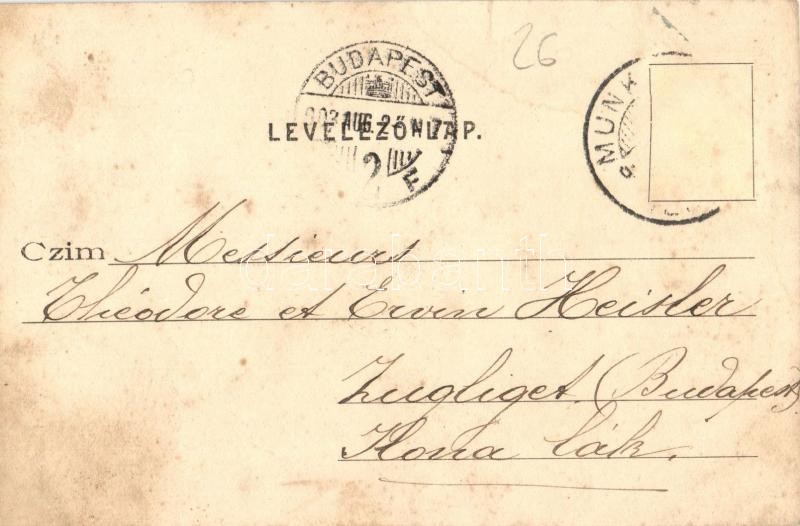 26
BUDAPEST
903 AUG. 2
LEVELEZŐ-LAP.
2 F
MUNK
Czim Messieurs
Théodore et Ervin Heisler
Zugliget (Budapest)
Ilona lák.
darabanth